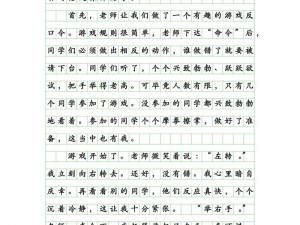 首先，老师让我们做了一个有趣的游戏反
口令。游戏规则很简单，老师下达“命令”后，
同学们必须做出相反的动作，谁做错了就要被
请下台。同学们听了，个个兴致勃勃、跃跃欲
试，把手举得老高。可毕竟人数有限，只有几
个同学参加了游戏。没参加的同学都兴致勃勃
地看着。参加的同学个个摩拳擦掌，做好了准
备，这当中也有我。
游戏开始了。老师微笑着说：“左转。”
我立刻向右转去。还好，没有错。我心里暗自
庆幸。再看看别的同学，他们反应真快，个个
沉着冷静，这让我十分紧张。“举右手。”